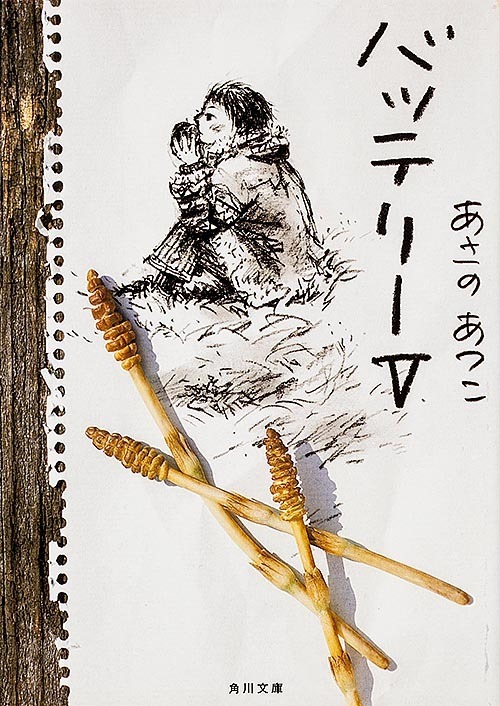 バッテリーⅤ
あさのあつこ
角川文庫